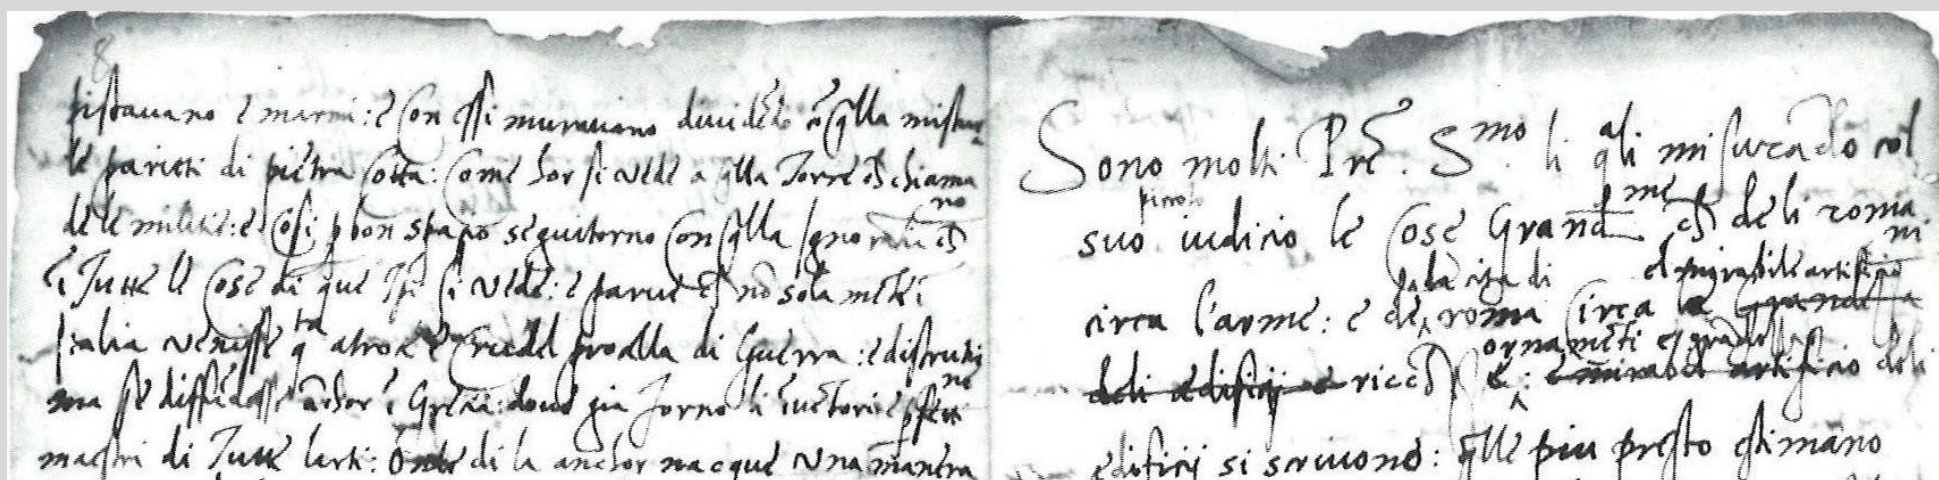 8
pistavano e marmi: e con essi muravano dividēdo cō q̄lla mistur
le parieti di pietra cotta: come hor si vede a q̄lla Torre ch chiamano
dele militie: e cosi p bon spatio seguitorno con q̄lla ignorātia ch
ī Tutte le cose di que Tpi si vede: e parve ch nō solamēte ī
Italia venisse q̄ta atroce e crudel procella di Guerra: e distrutione
ma se diffūdesse āchor ī Grecia: dove gia forno li īventori e pfetti
maestri di Tutte larti: Onde di la anchor nacque una manera
Sono molti Prē. Smo. li qali misurādo col
suo piccolo iudicio le cose Grandme ch deli romani
circa l'arme: e dela cita di roma circa el mirabile artificio la grandeza
deli edificij e ricchi ornamēti e grādeza e: e mirabel artificio deli
edificij si scrivono: q̄lle piu presto estimano